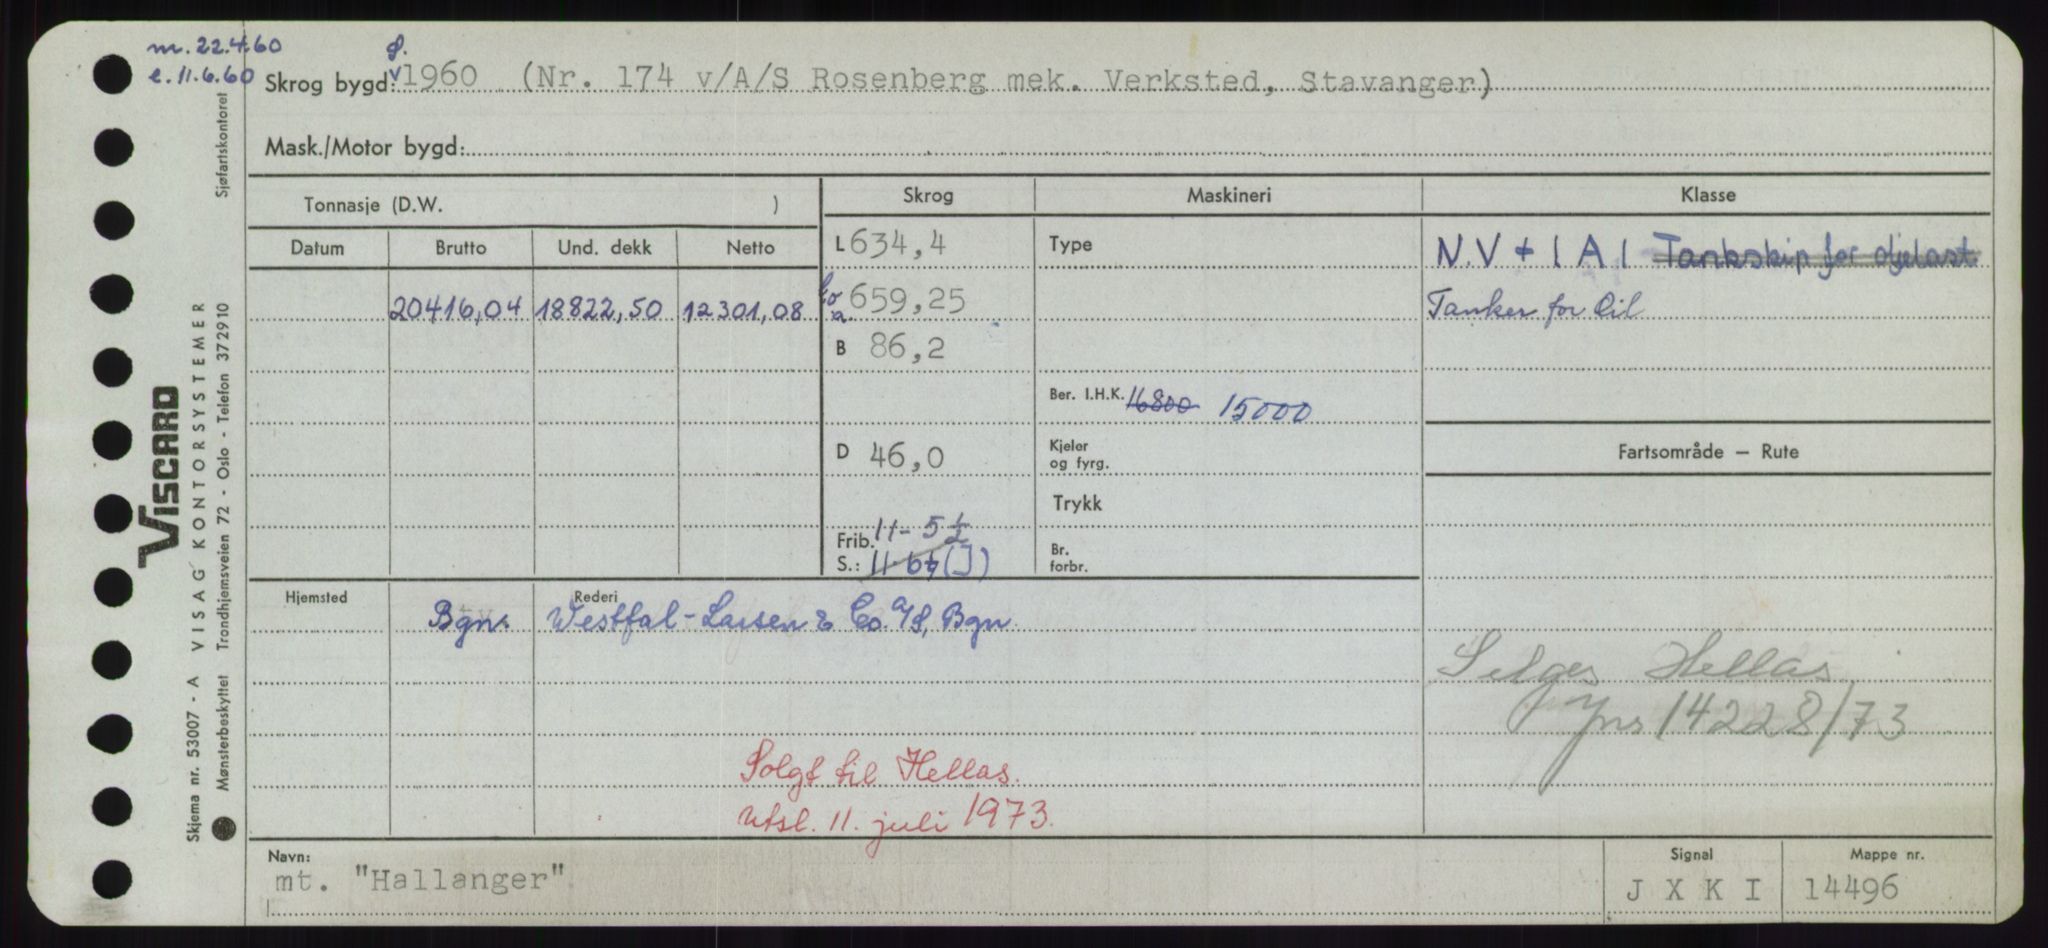 m. 22.4.60
e. 11.6.60
Skrog bygd: 1960 (Nr. 174 v/A/S Rosenberg mek. Verksted, Stavanger)
Mask./Motor bygd:
Tonnasje (D.W. )
Skrog Maskineri Klasse
Datum Brutto Und. dekk Netto
L 634,4 Type N.V + 1 A 1 Tankskip for oljelast
20416,04 18822,50 12301,08 659,25 Tanker for Oil
B 86,2
Ber. I.H.K. 16800 15000
D 46,0 Kjeler og fyrg. Fartsområde — Rute
Trykk
Frib. 11- 5 ½
S.: 11-6 (I) Br. forbr.
Hjemsted Rederi
Bgn. Westfal-Larsen & Co. A/S, Bgn
Selges Hellas
Jns 14228/73
Solgt til Hellas.
Utsl. 11. juli 1973.
Navn: Signal Mappe nr.
mt. "Hallanger" J X K I 14496
Sjøfartskontoret
VISCARD
Skjema nr. 53007 - A VISAG KONTORSYSTEMER
Mønsterbeskyttet Trondhjemsveien 72 - Oslo - Telefon 372910